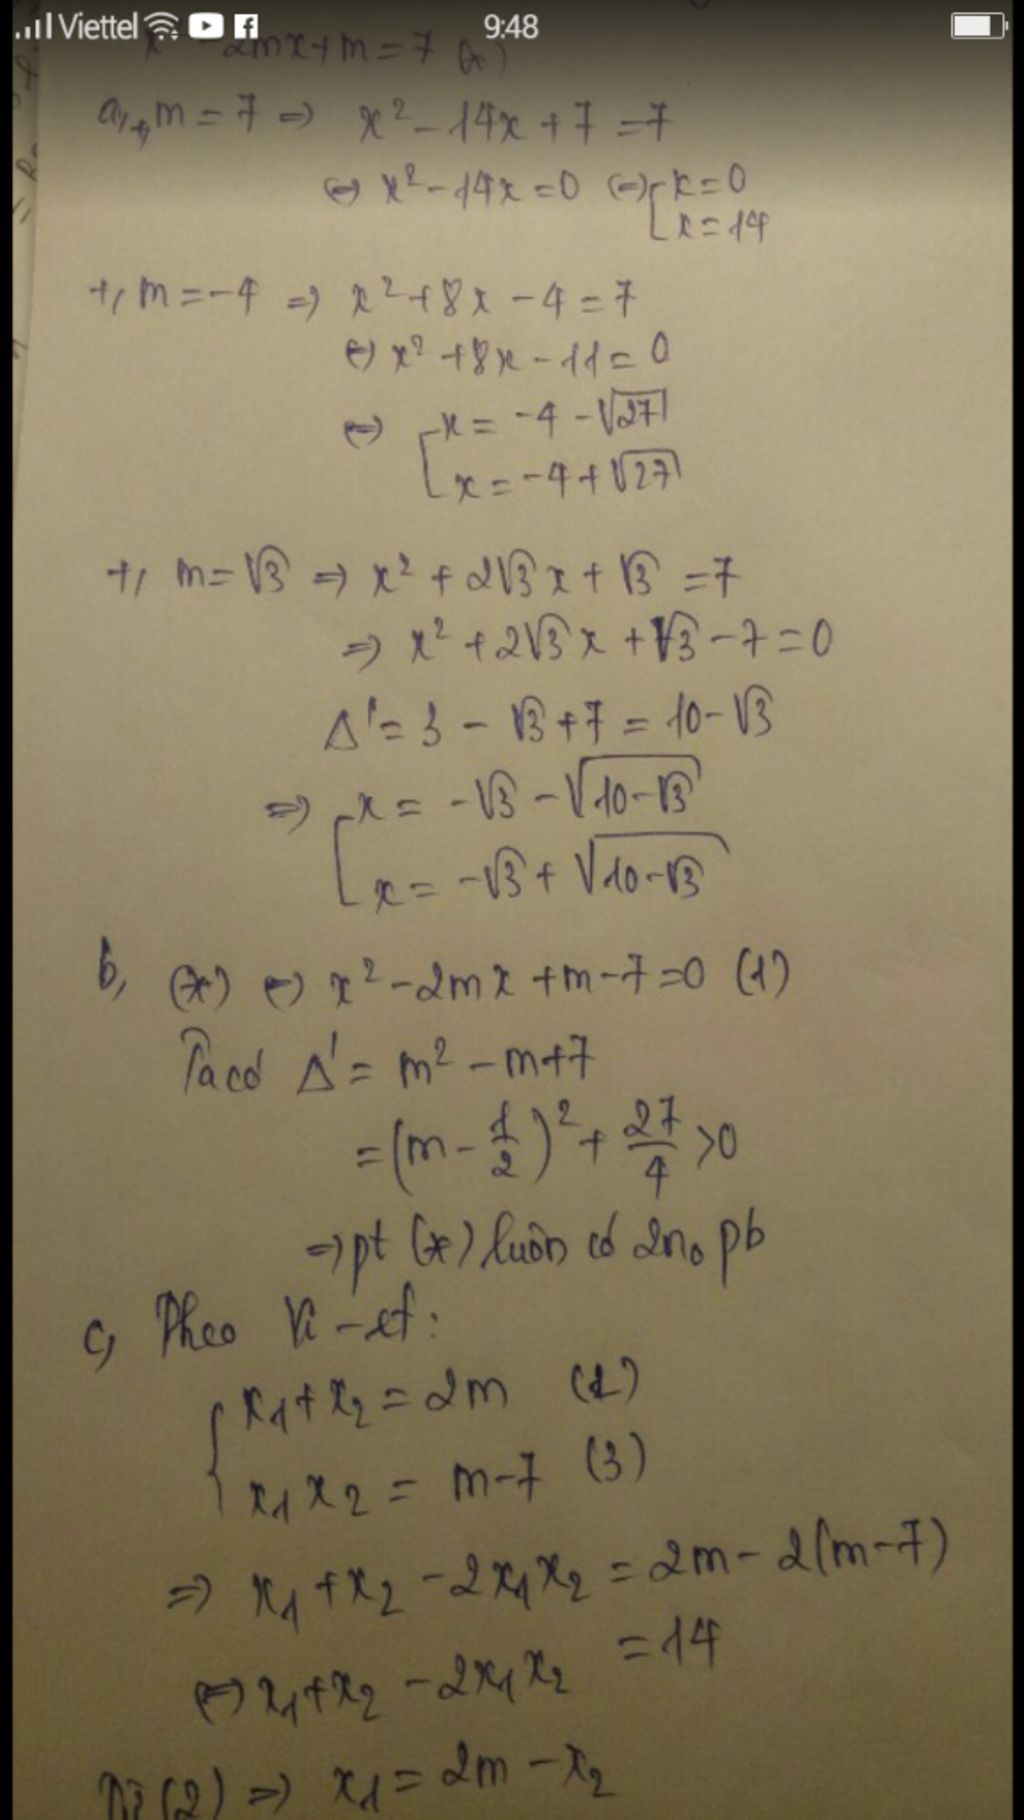 Viettel 9:48
x² - 2mx + m = 7 (*)
a, +, m = 7 => x² - 14x + 7 = 7
<=> x² - 14x = 0 <=> [x = 0
x = 14
+, m = -4 => x² + 8x - 4 = 7
<=> x² + 8x - 11 = 0
<=> [x = -4 - √27
x = -4 + √27
+, m = √3 => x² + 2√3x + √3 = 7
=> x² + 2√3x + √3 - 7 = 0
Δ' = 3 - √3 + 7 = 10 - √3
=> [x = -√3 - √(10 - √3)
x = -√3 + √(10 - √3)
b, (*) <=> x² - 2mx + m - 7 = 0 (1)
Ta có Δ' = m² - m + 7
= (m - 1/2)² + 27/4 > 0
=> pt (*) luôn có 2 no pb
c, Theo Vi-et:
{x₁ + x₂ = 2m (2)
x₁x₂ = m - 7 (3)
=> x₁ + x₂ - 2x₁x₂ = 2m - 2(m - 7)
= 14
<=> x₁ + x₂ - 2x₁x₂
Từ (2) => x₁ = 2m - x₂